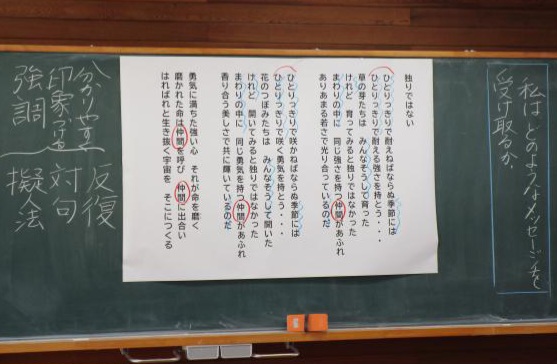 私は どのようなメッセージを
受け取るか、
独りではない
ひとりっきりで耐えねばならぬ季節には
ひとりっきりで耐える強さを持とう・・・
草の芽たちは みんなそうして育った
けれど 育ってみると独りではなかった
まわりの中に 同じ強さを持つ仲間があふれ
あふあまる若さで光り合っているのだ
ひとりっきりで咲かねばならぬ季節には
ひとりっきりで咲く勇気を持とう・・・
花のつぼみたちは みんなそうして開いた
けれど 開いてみると独りではなかった
まわりの中に 同じ勇気を持つ仲間があふれ
香り合う美しさで共に輝いているのだ
勇気に満ちた強い心 それが命を磨く
磨かれた命は仲間を呼び 仲間に出合い
はればれと生き抜く宇宙を そこにつくる
反復
対句
擬人法
印象
強調